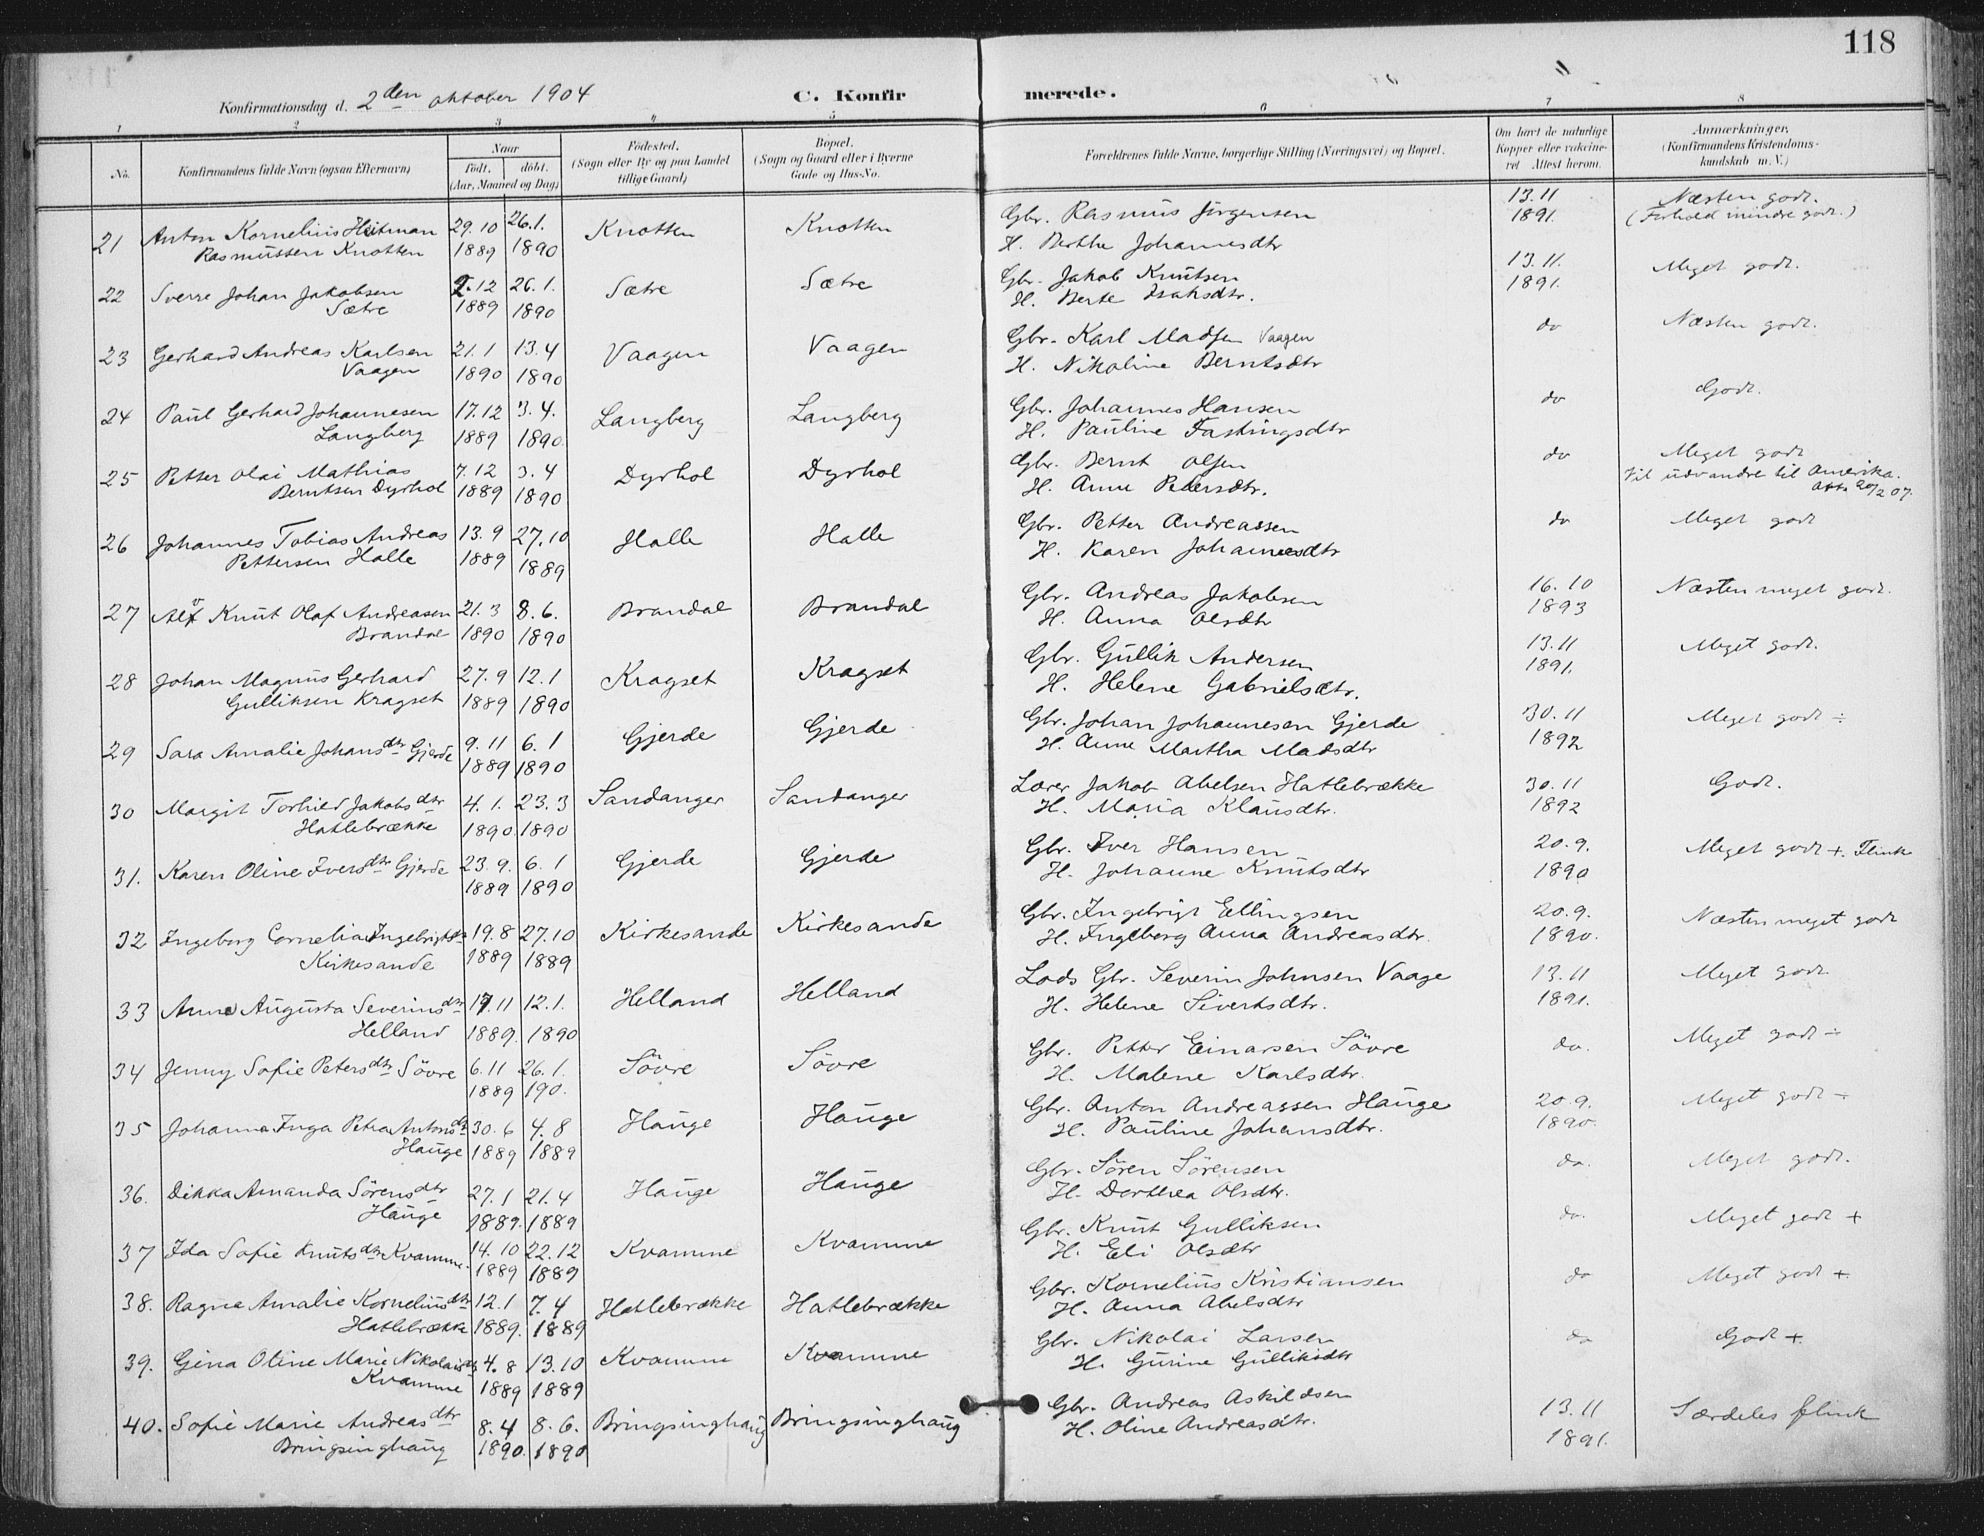 118
Konfirmationsdag d. 2den oktober 1904 C. Konfirmerede.
1 2 3 4 5 6 7 8
No. Konfirmandens fulde Navn (ogsaa Efternavn) Naar født. døbt. (Aar, Maaned og Dag) Fødested. (Sogn eller By og paa Landet tillige Gaard) Bopæl. (Sogn og Gaard eller i Byerne Gade og Hus-No. Forældrenes fulde Navne, borgerlige Stilling (Næringsvei) og Bopæl. Om havt de naturlige Kopper eller vaccineret. Attest herom. Anmærkninger. (Konfirmandens Kristendomskundskab m. V.)
21 Anton Kornelius Hitman 29.10 26.1. Knotten Knotten Gbr. Rasmus Jørgensen 13.11 Næsten godt.
Rasmussen Knotten 1889 1890 H. Berthe Johannesdtr 1891. (Forhold mindre godt.)
22 Sverre Johan Jakobsen 2.12 26.1. Sætre Sætre Gbr. Jakob Knutsen 13.11. Meget godt.
Sætre 1889 1890 H. Berte Isaksdtr. 1891.
23 Gerhard Andreas Karlsen 21.1 13.4 Vaagen Vaagen Gbr. Karl Madsen Vaagen do Næsten godt.
Vaagen 1890 1890 H. Nikoline Berntsdtr
24 Paul Gerhard Johannesen 17.12 3.4. Langberg Langberg Gbr. Johannes Hansen do Godt.
Langberg 1889 1890. H. Pauline Fastingsdtr
25 Petter Olai Mathias 7.12 3.4 Dyrhol Dyrhol Gbr. Bernt Olsen do Meget godt
Berntsen Dyrhol 1889 1890 H. Anne Petersdtr. Vil udvandre til Amerika.
Att. 20/2 07.
26 Johannes Tobias Andreas 13.9 27.10 Halle Halle Gbr. Petter Andreassen do Meget godt
Pettersen Halle 1889 1889 H. Karen Johannesdtr
27 Alf Knut Olaf Andreasen 21.3 8.6. Brandal Brandal Gbr. Andreas Jakobsen 16.10 Næsten meget godt.
Brandal 1890 1890 H. Anna Olsdtr 1893
28 Johan Magnus Gerhard 27.9 12.1 Kragset Kragset Gbr. Gullik Andersen 13.11 Meget godt.
Gulliksen Kragset 1889 1890 H. Helene Gabrielsdtr. 1891.
29 Sara Amalie Johansdtr Gjerde 9.11 6.1 Gjerde Gjerde Gbr. Johan Johannesen Gjerde 30.11 Meget godt ÷
1889 1890 H. Anne Martha Madsdtr 1892
30 Margit Torhild Jakobsdtr 4.1. 23.3 Sandanger Sandanger Lærer Jakob Abelsen Hatlebrække 30.11 Godt.
Hatlebrække 1890 1890 H. Maria Klausdtr. 1892
31. Karen Oline Iversdtr Gjerde 23.9. 6.1 Gjerde Gjerde Gbr. Iver Hansen 20.9. Meget godt +. Flink
1889 1890 H. Johanne Knutsdtr 1890
32 Ingeborg Cornelia Ingebrigtsdtr 19.8 27.10 Kirkesande Kirkesande Gbr. Ingebrigt Ellingsen 20.9. Næsten meget godt
Kirkesande 1889 1889 H. Ingeborg Anna Andreasdtr. 1890.
33 Anne Augusta Severinsdtr 17.11 12.1. Helland Helland Lods Gbr. Severin Johnsen Vaage 13.11 Meget godt.
Helland 1889. 1890 H. Helene Sivertsdtr. 1891.
34 Jenny Sofie Petersdtr Søvre 6.11 26.1. Søvre Søvre Gbr. Petter Einarsen Søvre do. Meget godt ÷
1889 190. H. Malene Karlsdtr.
35 Johanna Inga Petra Antonsdtr 30.6 4.8 Hauge Hauge Gbr. Anton Andreassen Hauge 20.9. Meget godt ÷
Hauge 1889 1889 H. Pauline Johansdtr. 1890.
36. Dikka Amanda Sørensdtr 27.1 21.4 Hauge Hauge Gbr. Søren Sørensen do. Meget godt.
Hauge 1889. 1889 H. Dorthea Olsdtr.
37 Ida Sofie Knutsdtr Kvamme. 14.10 22.12 Kvamme Kvamme Gbr. Knut Gulliksen do. Meget godt +
1889 1889 H. Eli Olsdtr
38. Ragna Amalie Korneliusdtr 12.1 7.4 Hatlebrække Hatlebrække Gbr. Kornelius Kristiansen do Meget godt +
Hatlebrække 1889. 1889 H. Anna Abelsdtr
39. Gina Oline Marie Nikolaisdtr 4.8 13.10 Kvamme Kvamme Gbr. Nikolai Larsen do Godt +
Kvamme 1889 1889 H. Gurine Gulliksdtr
40. Sofie Marie Andreasdtr 8.4 8.6. Bringsinghaug Bringsinghaug Gbr. Andreas Askildsen 13.11 Særdeles flink
Bringsinghaug 1890. 1890 H. Oline Andreasdtr. 1891.